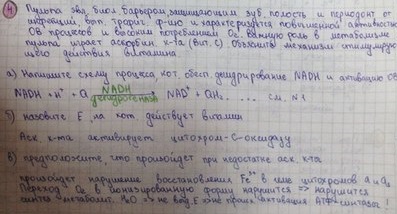 4) Пульпа явл. биол. барьером, защищающим зуб. полость и периодонт от
инфекций, вып. трофич. ф-ию и характеризуется повышенной активностью
ОВ процессов и высоким потреблением O₂. Важную роль в метаболизме
пульпы играет аскорбин. к-та (вит. С). Объясните механизм стимулирую-
щего действия витамина
а) Напишите схему процесса, кот. обесп. дегидрирование NADH и активацию ОВ
NADH + H⁺ + Q NADH дегидрогеназа → NAD⁺ + QH₂ . . . . см. N1
б) назовите Е, на кот. действует витамин
Аск. к-та активирует цитохром-С-оксидазу
в) предположите, что произойдет при недостатке аск. к-ты
произойдет нарушение восстановления Fe³⁺ в геме цитохромов a и a₃
Переход O₂ в ионизированную форму нарушится => нарушится
синтез метабол. H₂O => не выд. Е => не произ. активация АТФ синтазы!